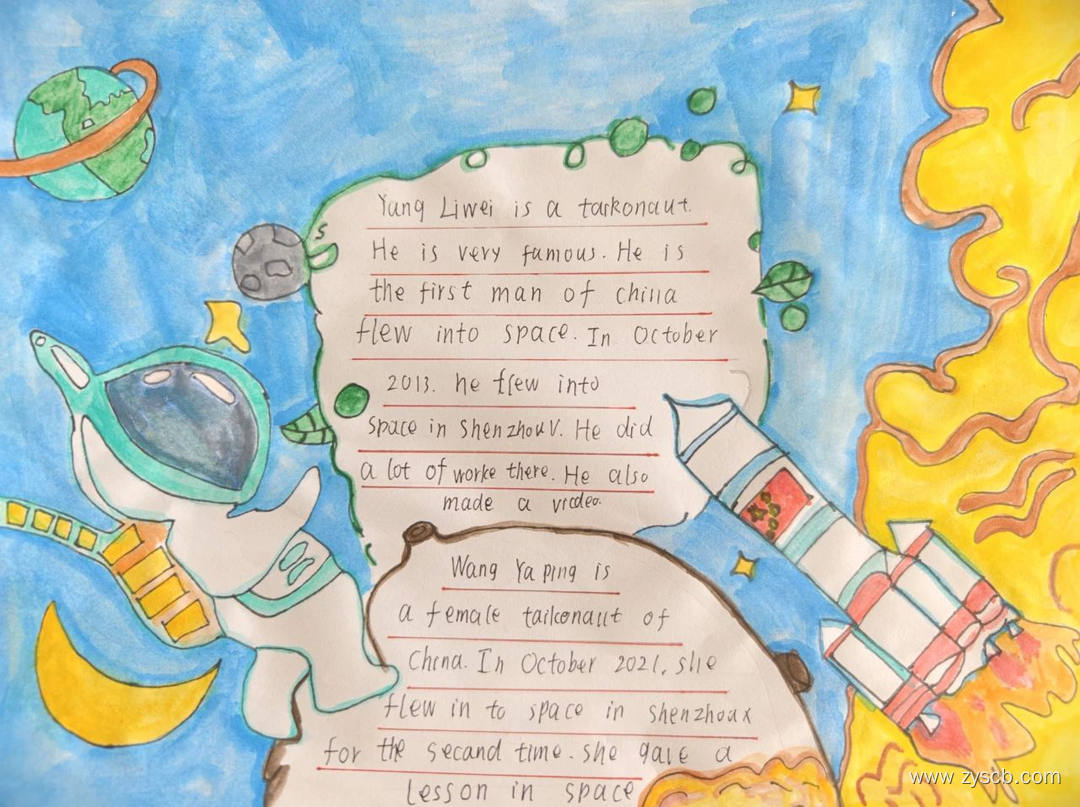 Yang Liwei is a taikonaut.
He is very famous. He is
the first man of china
flew into space. In October
2013. he flew into
space in shenzhou V. He did
a lot of worke there. He also
made a video.
Wang Ya ping is
a female taikonaut of
China. In October 2021, she
flew in to space in shenzhoux
for the second time. she gave a
Lesson in space
www.zyscb.com